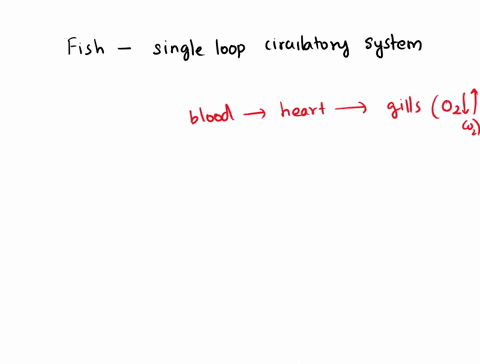 Fish – single loop circulatory system
blood → heart → gills (O2↓↑
CO2)